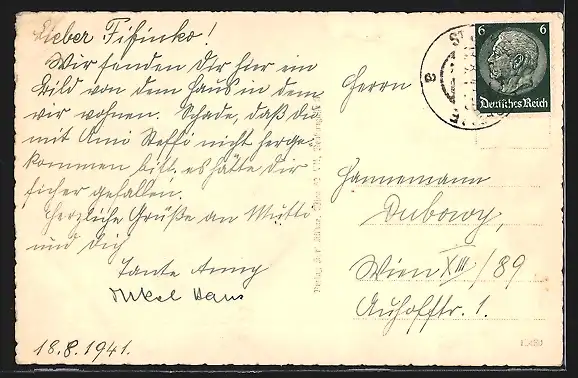 Lieber Fifinko!
Wir senden Dir hier ein
Bild von dem Haus in dem
wir wohnen. Schade, daß du
mit Omi Steffi nicht herge-
kommen bist. es hätte dir
sicher gefallen.
Herzliche Grüße an Mutti
und Dich
Tante Anny
Onkel Hans
18.8.1941.
6 6
Deutsches Reich
Herrn
Hannemann
Dubowy,
Wien XIII/89
Auhofstr. 1.